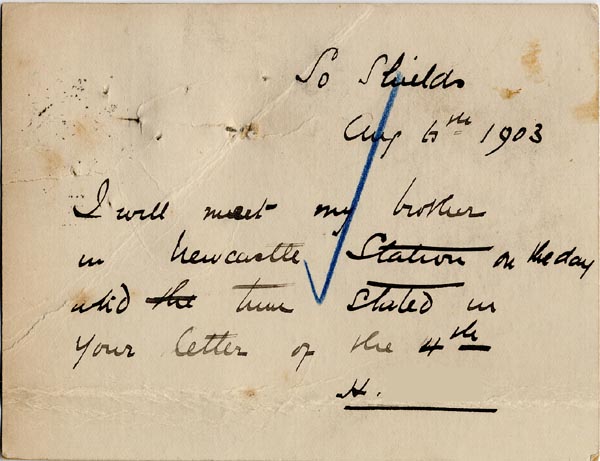 So Shields
Aug 6th 1903
I will meet my brother
in Newcastle Station on the day
and the time stated in
Your letter of the 4th
H.